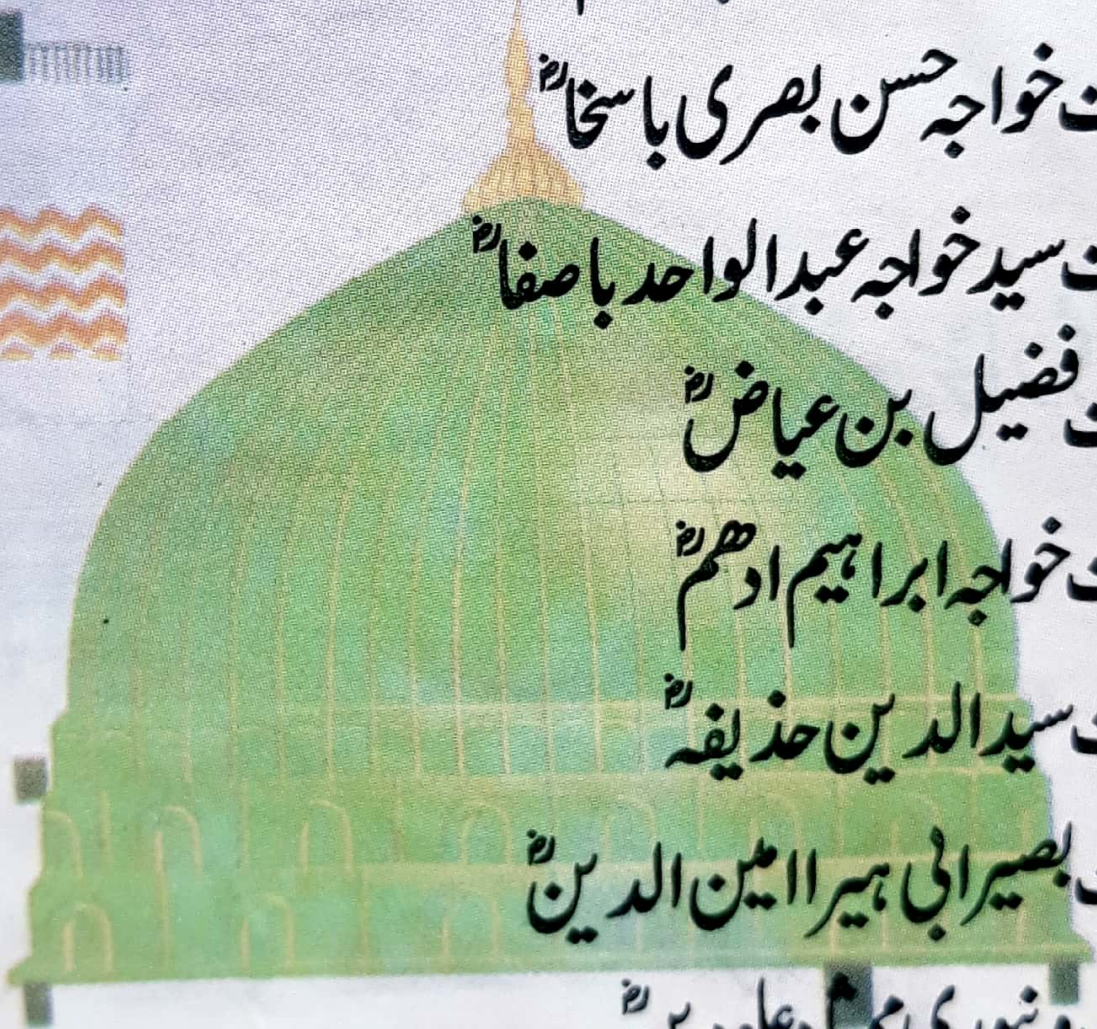 ت خواجہ حسن بصری با سخاؓ
ت سید خواجہ عبدالواحد با صفاؓ
ت فضیل بن عیاضؓ
ت خواجہ ابراہیم ادھمؓ
ت سیدالدین حذیفہؓ
بصیرابی ہیرا امین الدینؓ